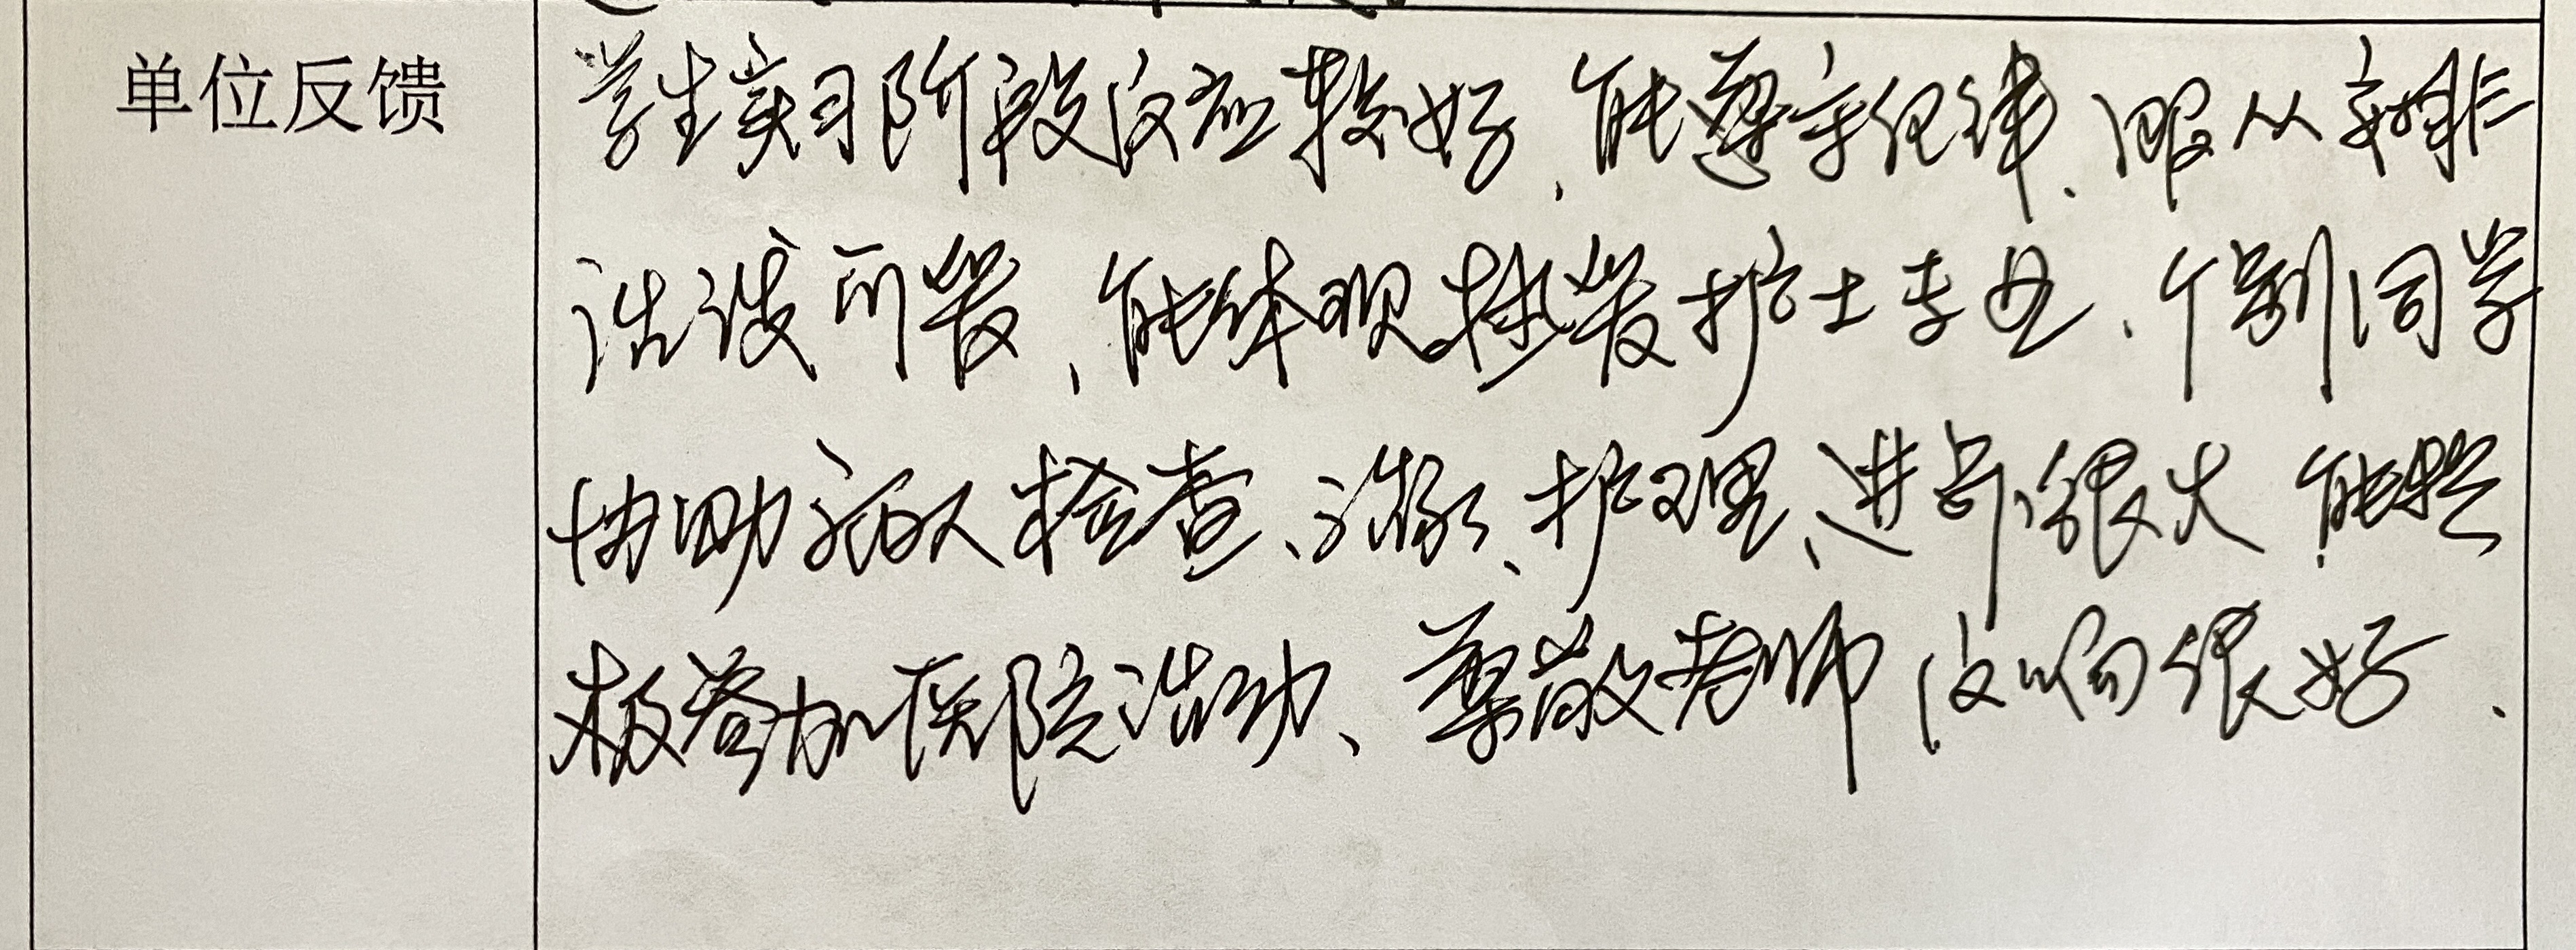 单位反馈
学生实习阶段反应较好、能遵守纪律、服从安排
能体现 护士专业、个别同学
协助病人检查、治疗、护理、进步很大 能积
极参加医院活动、尊敬老师 反响很好.